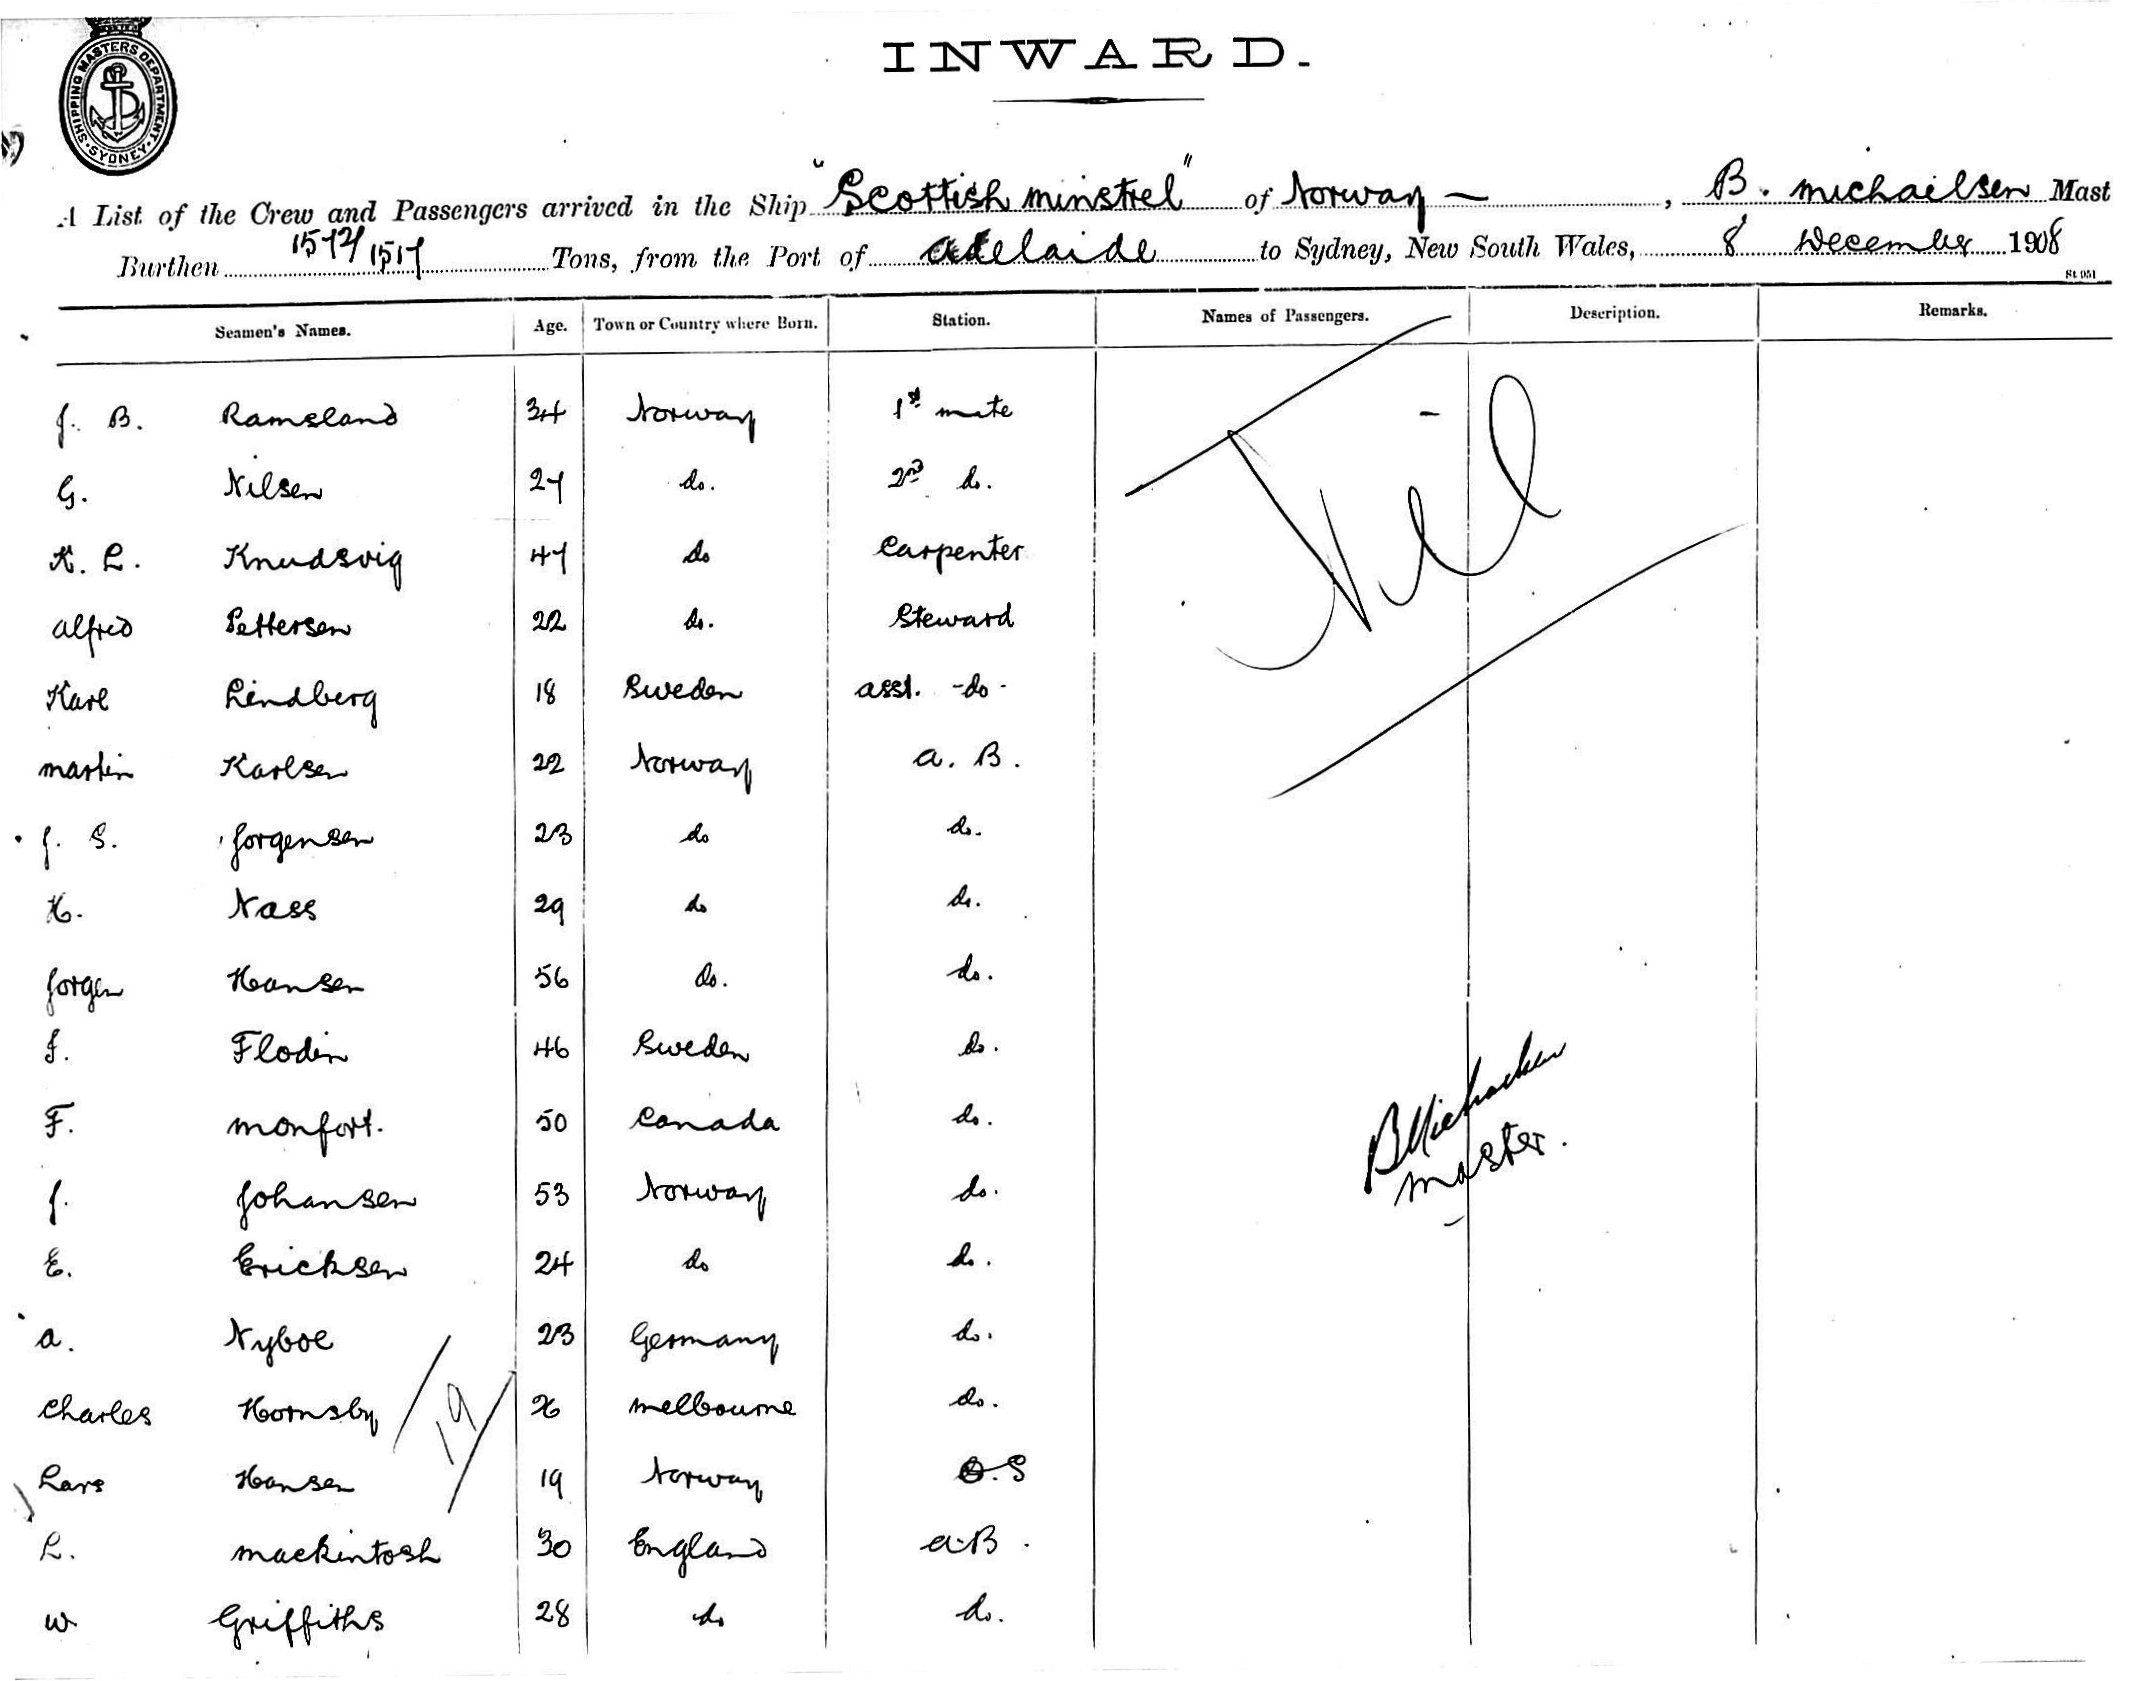 INWARD.
SHIPPING MASTERS DEPARTMENT
SYDNEY
A List of the Crew and Passengers arrived in the Ship "Scottish minstrel" of Norway —, B. michailsen Mast
Burthen 1572/1517 Tons, from the Port of adelaide to Sydney, New South Wales, 8 December 1908
St 051
Seamen's Names. Age. Town or Country where Born. Station. Names of Passengers. Description. Remarks.
J. B. Ramsland 34 Norway 1st mate
Nil
G. Nilsen 27 do. 2nd do.
K. L. Knudsvig 47 do Carpenter
alfred Pettersen 22 do. Steward
Karl Lindberg 18 Sweden asst. -do-
martin Karlsen 22 Norway a. B.
J. S. Jorgensen 23 do do.
H. Nass 29 do do.
Jorgen Hansen 56 do. do.
J. Flodin 46 Sweden do.
F. monfort. 50 Canada do.
BMichaelsen
master.
J. Johansen 53 Norway do.
E. Ericksen 24 do do.
a. Nyboe 23 Germany do.
Charles Hornsby 26 melbourne do.
19
Lars Hansen 19 Norway O.S
L. mackintosh 30 England a.B.
W Griffiths 28 do do.